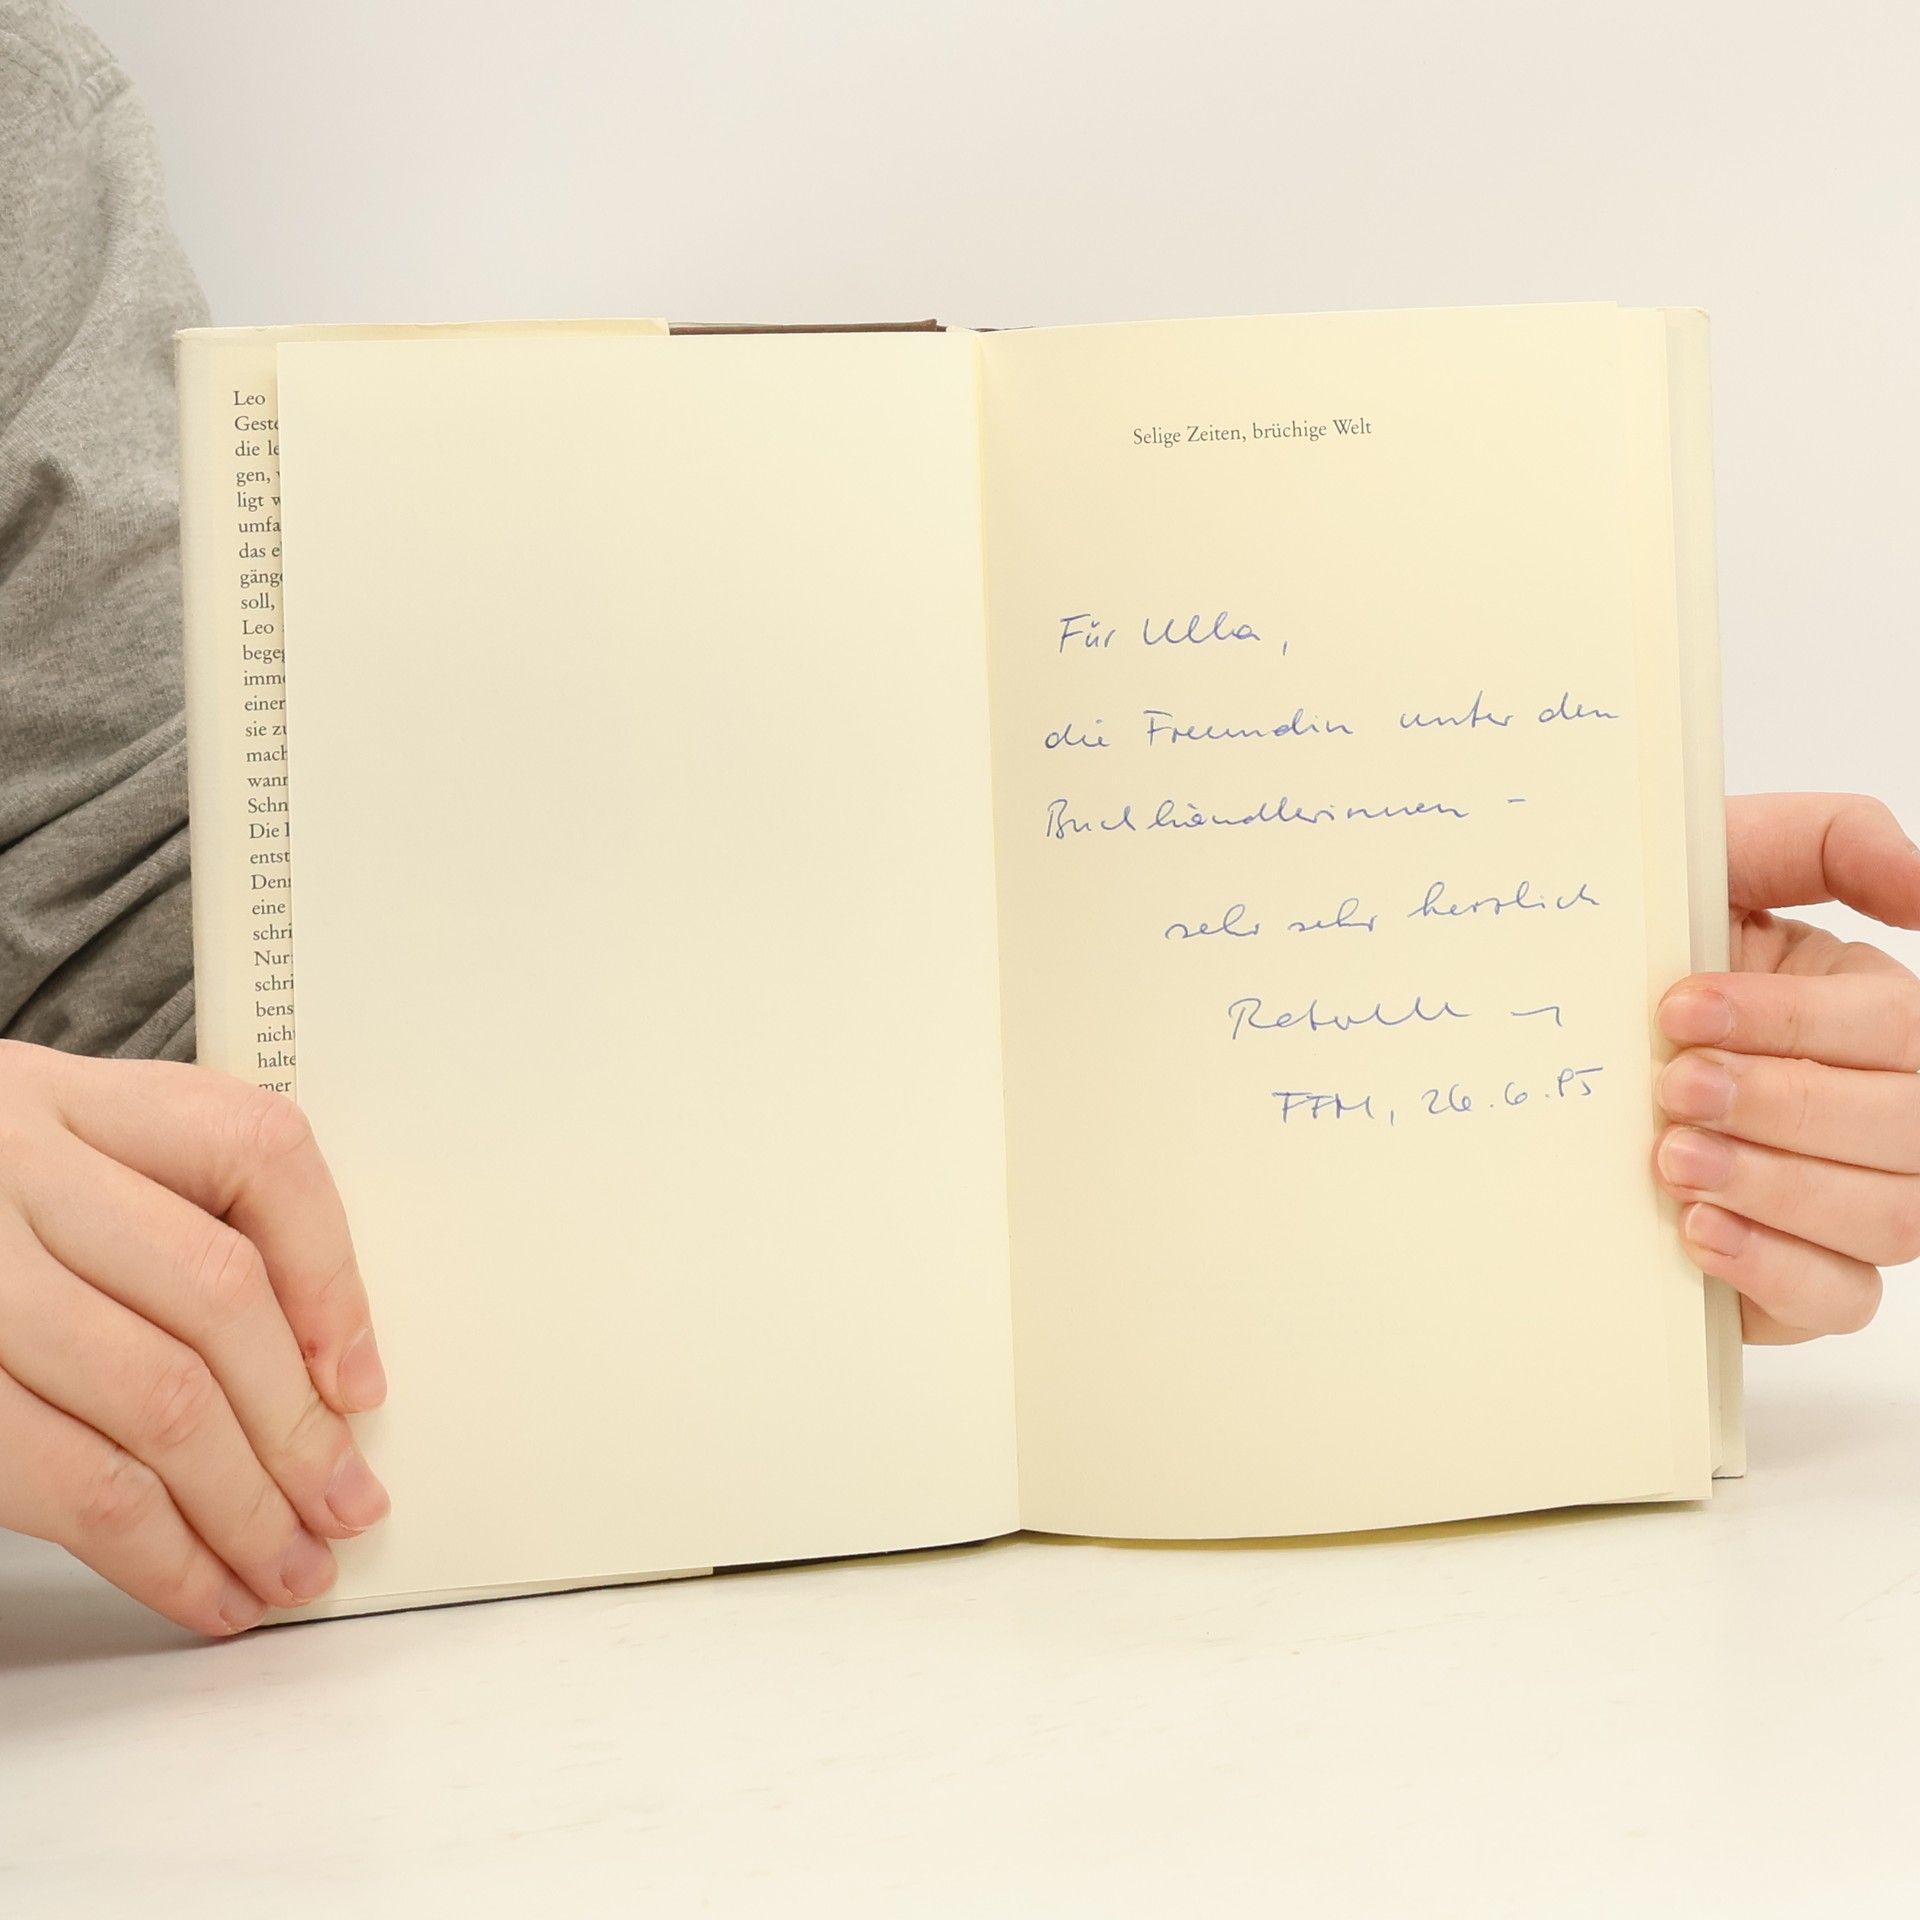 Leo
Geste
die le
gen, v
ligt w
umfa
das e
gänge
soll,
Leo
bege
imme
einer
sie zu
mach
wann
Schn
Die
entst
Denn
eine
schri
Nur
schri
bens
nich
halte
mer
Selige Zeiten, brüchige Welt
Für Ulla,
die Freundin unter den
Buchhändlerinnen –
sehr sehr herzlich
FFM, 26.6.95